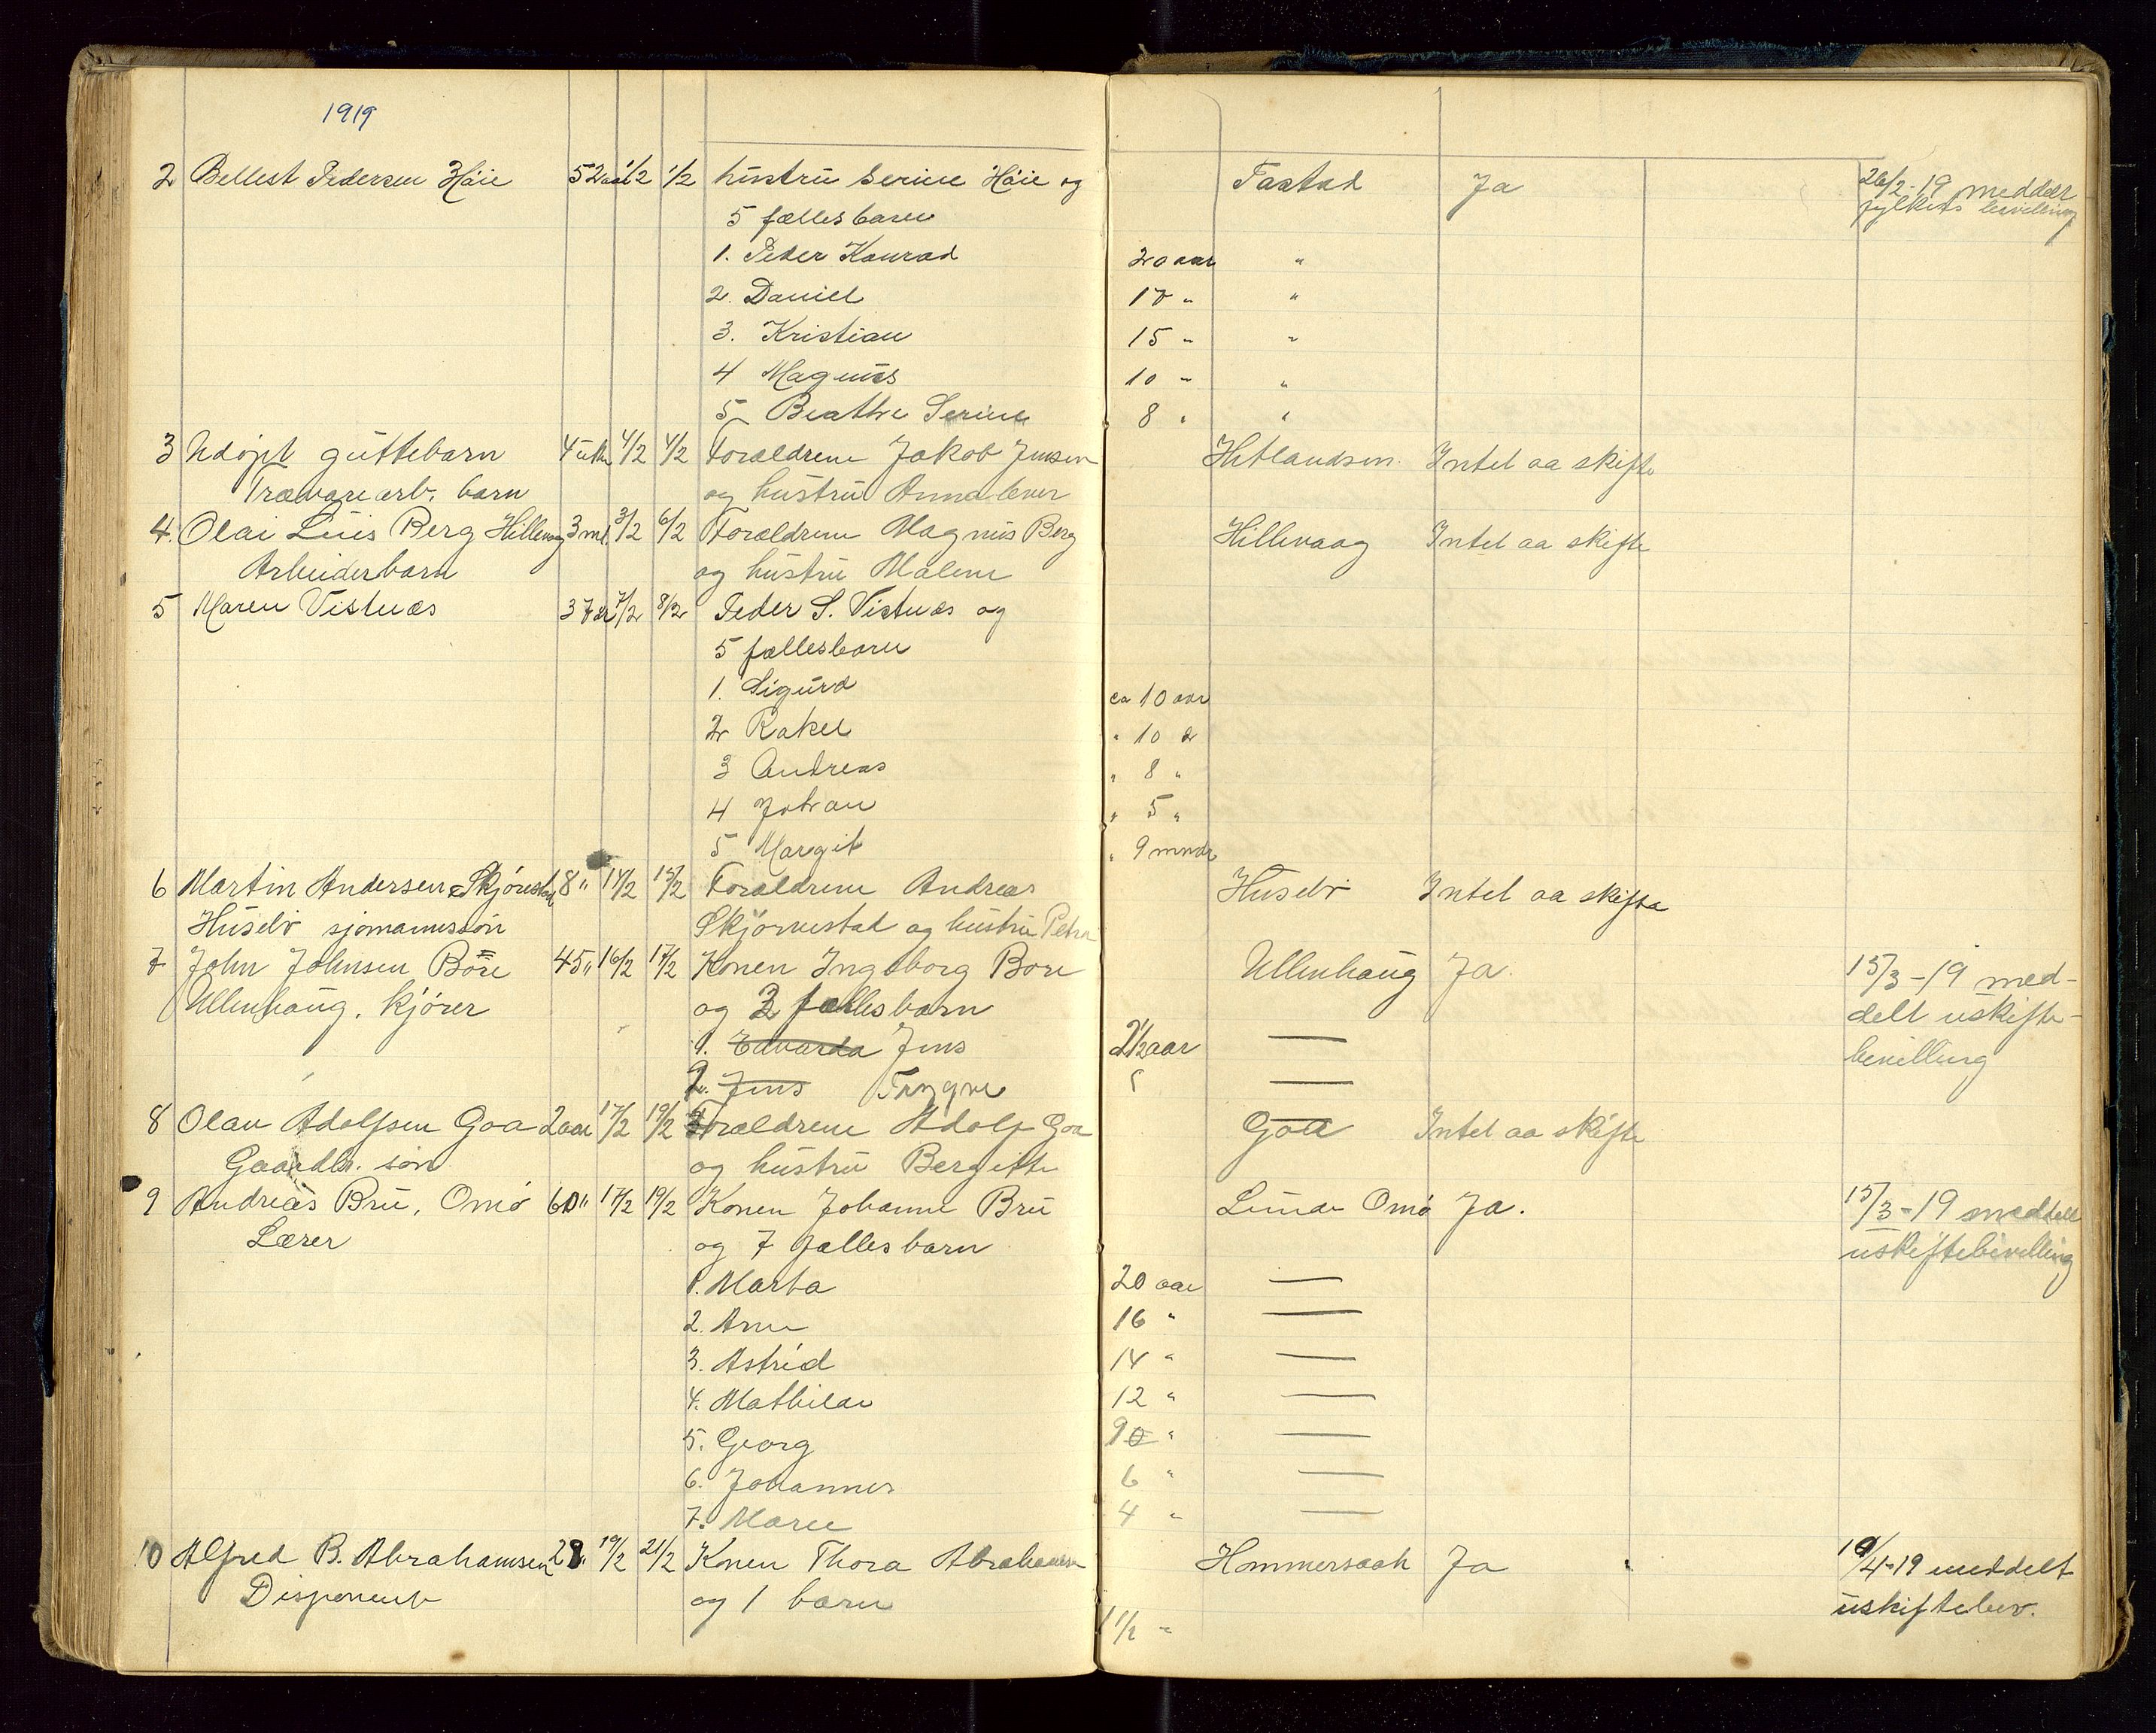 1919
2 Bellest Pedersen Høie 52 aar 1/2 1/2 hustru Serine Høie og Tastad Ja 26/2-19 meddelt
5 fællesbarn fylkets bevilling
1. Peder Konrad 20 aar "
2. Daniel 17 " "
3. Kristian 15 " "
4 Magnus 10 " "
5 Beathe Serine 8 " "
3 Udøpt guttebarn 4 uker 4/2 4/2 Forældrene Jakob Jensen Hetlandsm. Intet aa skifte
Trævarearb. barn og hustru Anna lever
4. Olai Luis Berg Hillevaag 3 md. 3/2 6/2 Forældrene Magnus Berg Hillevaag Intet aa skifte
Arbeiderbarn og hustru Malene
5 Maren Vistnæs 37 aar 7/2 8/2 Peder S. Vistnæs og
5 fællesbarn
1. Sigurd ca 10 aar
2 Rakel " 10 "
3 Andreas " 8 "
4 Johan " 5 "
5 Margit " 9 mndr
6 Martin Andersen Skjørestad 8 " 14/2 15/2 Forældrene Andreas Husebø Intet aa skifte
Husebø sjømannssøn Skjørnestad og hustru Petra
7 John Johnsen Bore 45 " 16/2 17/2 Konen Ingeborg Bore Ullenhaug Ja. 15/3-19 med-
Ullenhaug. kjører og 2 fællesbarn delt uskifte-
1. Edvarda Jens 2 1/2 aar — bevilling
2. Jens Trygve —
8 Olav Adolfsen Goa 2 aar 17/2 19/2 Forældrene Adolf Goa Goa Intet aa skifte
Gaardbr. søn og hustru Bergitte
9 Andreas Bru, Omø 60 " 17/2 19/2 Konen Johanne Bru Omø Ja. 15/3-19 meddelt
Lærer og 7 fællesbarn uskiftebevilling
1. Marta 20 aar —
2. Arne 16 " —
3. Astrid 14 " —
4. Mathilde 12 " —
5. Georg 9 " —
6. Johannes 6 " —
7. Marie 4 " —
10 Alfred B. Abrahamsen 28 " 19/2 21/2 Konen Thora Abrahamsen Hommersaak Ja 10/4-19 meddelt
Disponent og 1 barn uskiftebev.
1 1/2 "